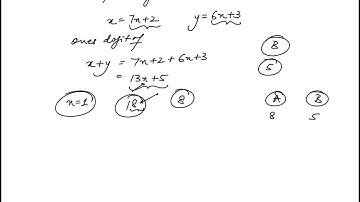 x = 7n+2 y = 6n+3
ones digit of
8
x+y = 7n+2 + 6n+3
5
= 13n+5
n=1 18 8 A B
8 5